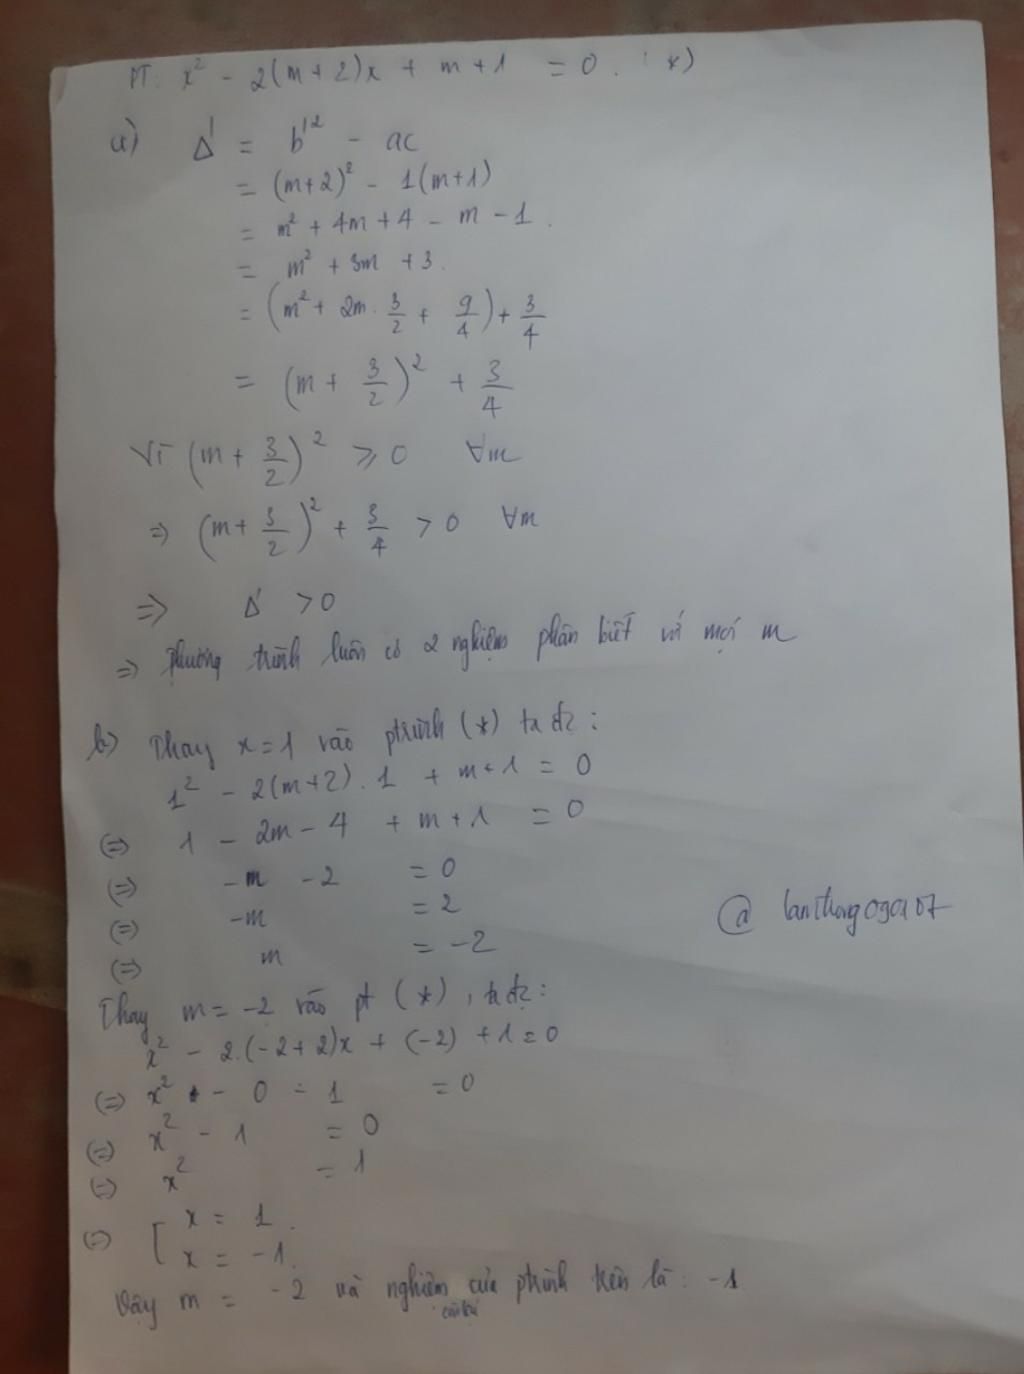 PT: x² - 2(m+2)x + m+1 = 0. (*)
a) Δ' = b'² - ac
= (m+2)² - 1(m+1)
= m² + 4m + 4 - m - 1.
= m² + 3m + 3.
= (m² + 2m . 3/2 + 9/4) + 3/4
= (m + 3/2)² + 3/4
Vì (m + 3/2)² ⩾ 0 ∀m
⇒ (m + 3/2)² + 3/4 > 0 ∀m
⇒ Δ' > 0
⇒ Phương trình luôn có 2 nghiệm phân biệt với mọi m
b) Thay x = 1 vào ptrình (*) ta đc:
1² - 2(m+2).1 + m+1 = 0
(=) 1 - 2m - 4 + m + 1 = 0
(=) -m - 2 = 0
(=) -m = 2
(=) m = -2
@ lanthong090107
Thay m = -2 vào pt (*), ta đc:
x² - 2.(-2+2)x + (-2) + 1 = 0
(=) x² - 0 - 1 = 0
(=) x² - 1 = 0
(=) x² = 1
(=) [ x = 1.
x = -1.
Vậy m = -2 và nghiệm của ptrình trên là: -1
còn lại